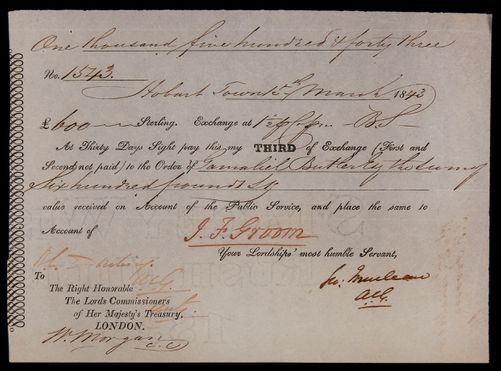 One thousand five hundred & forty three
No. 1543.
Hobart Town 15th March 1843
£ 600 Sterling. Exchange at 1½ p Cn. B.S.
At Thirty Days Sight pay this my THIRD of Exchange (First and
Second not paid) to the Order of Gamaliel Butler Esq the Sum of
Six hundred pounds Stg
value received on Account of the Public Service, and place the same to
Account of J. F. Groom
Your Lordships' most humble Servant,
To
The Right Honorable
The Lords Commissioners
of Her Majesty's Treasury,
LONDON.
Geo: Maclean
A.C.G.
W. Morgan